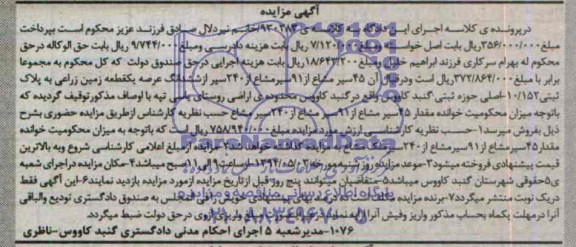 آگهی مزایده
درپرونده ی کلاسه اجرای این دادگاه کلاسه خانم نیر دلال صادق فرزند عزیز محکوم است بپرداخت
مبلغ ۳۵۶/۰۰۰/۰۰۰ ریال بابت اصل خواسته ومبلغ ۷/۱۲۰/۰۰۰ ریال بابت هزینه دادرسی ومبلغ ۹/۷۴۴/۰۰۰ ریال بابت حق الوکاله درحق
محکوم له بهرام سرکاری فرزند ابراهیم ومبلغ ۱۸/۶۴۳/۲۰۰ ریال بابت هزینه اجرایی درحق صندوق دولت که کل محکوم به مجموعا
برابر با مبلغ ۳۷۲/۸۶۴/۰۰۰ ریال است ودرقبال آن ۴۵ سیر مشاع از ۹۱ سیر مشاع از ۲۴۰ سیر ازششدانگ عرصه یکقطعه زمین زراعی به پلاک
ثبتی ۱۰/۱۵۲- اصلی حوزه ثبتی گنبد کاووس واقع در گنبد کاووس محدوده ی اراضی روستای تپه با اوصاف مذکور توقیف گردیده که
باتوجه میزان محکومیت خوانده مقدار ۴۵ سیر مشاع از ۹۱ سیر مشاع از ۲۴۰ سیر مشاع حسب نظریه کارشناس ازطریق مزایده حضوری بشرح
ذیل بفروش میرسد ۱-حسب نظریه کارشناسی ارزش مورد مزایده مبلغ ۷۵۸/۹۴۰/۰۰۰ ریال است که باتوجه به میزان محکومیت خوانده
مقدار ۴۵ سیر مشاع از ۹۱ سیر مشاع از ۲۴۰ مزایده ازمبلغ اعلامی کارشناسی شروع وبه بالاترین
قیمت پیشنهادی فروخته میشود ۳-موعد مزایده روز شنبه مورخه ۱۳۹۴/۰۵/۰۳ ازساعت ۹ الی ۱۱ صبح میباشد ۴-مکان مزایده دراجرای شعبه
ی حقوقی شهرستان گنبد کاووس میباشد ۵-متقاضیان میتوانند پنج روز قبل ازتاریخ مزایده ازمورد مزایده بازدید نمایند ۶-این آگهی فقط
دریک نوبت منتشر میگردد ۷-برنده مزایده بهای پیشنهادی خویش را فی المجلس به صندوق دادگستری تودیع والباقی
آنرا درمهلت یکماه بحساب مذکور واریز وفیش آنرا ارائه نماید واریزی درحق دولت ضبط میگردد.
۱۰۷۶-مدیر شعبه ۵ اجرای احکام مدنی دادگستری گنبد کاووس-ناظری